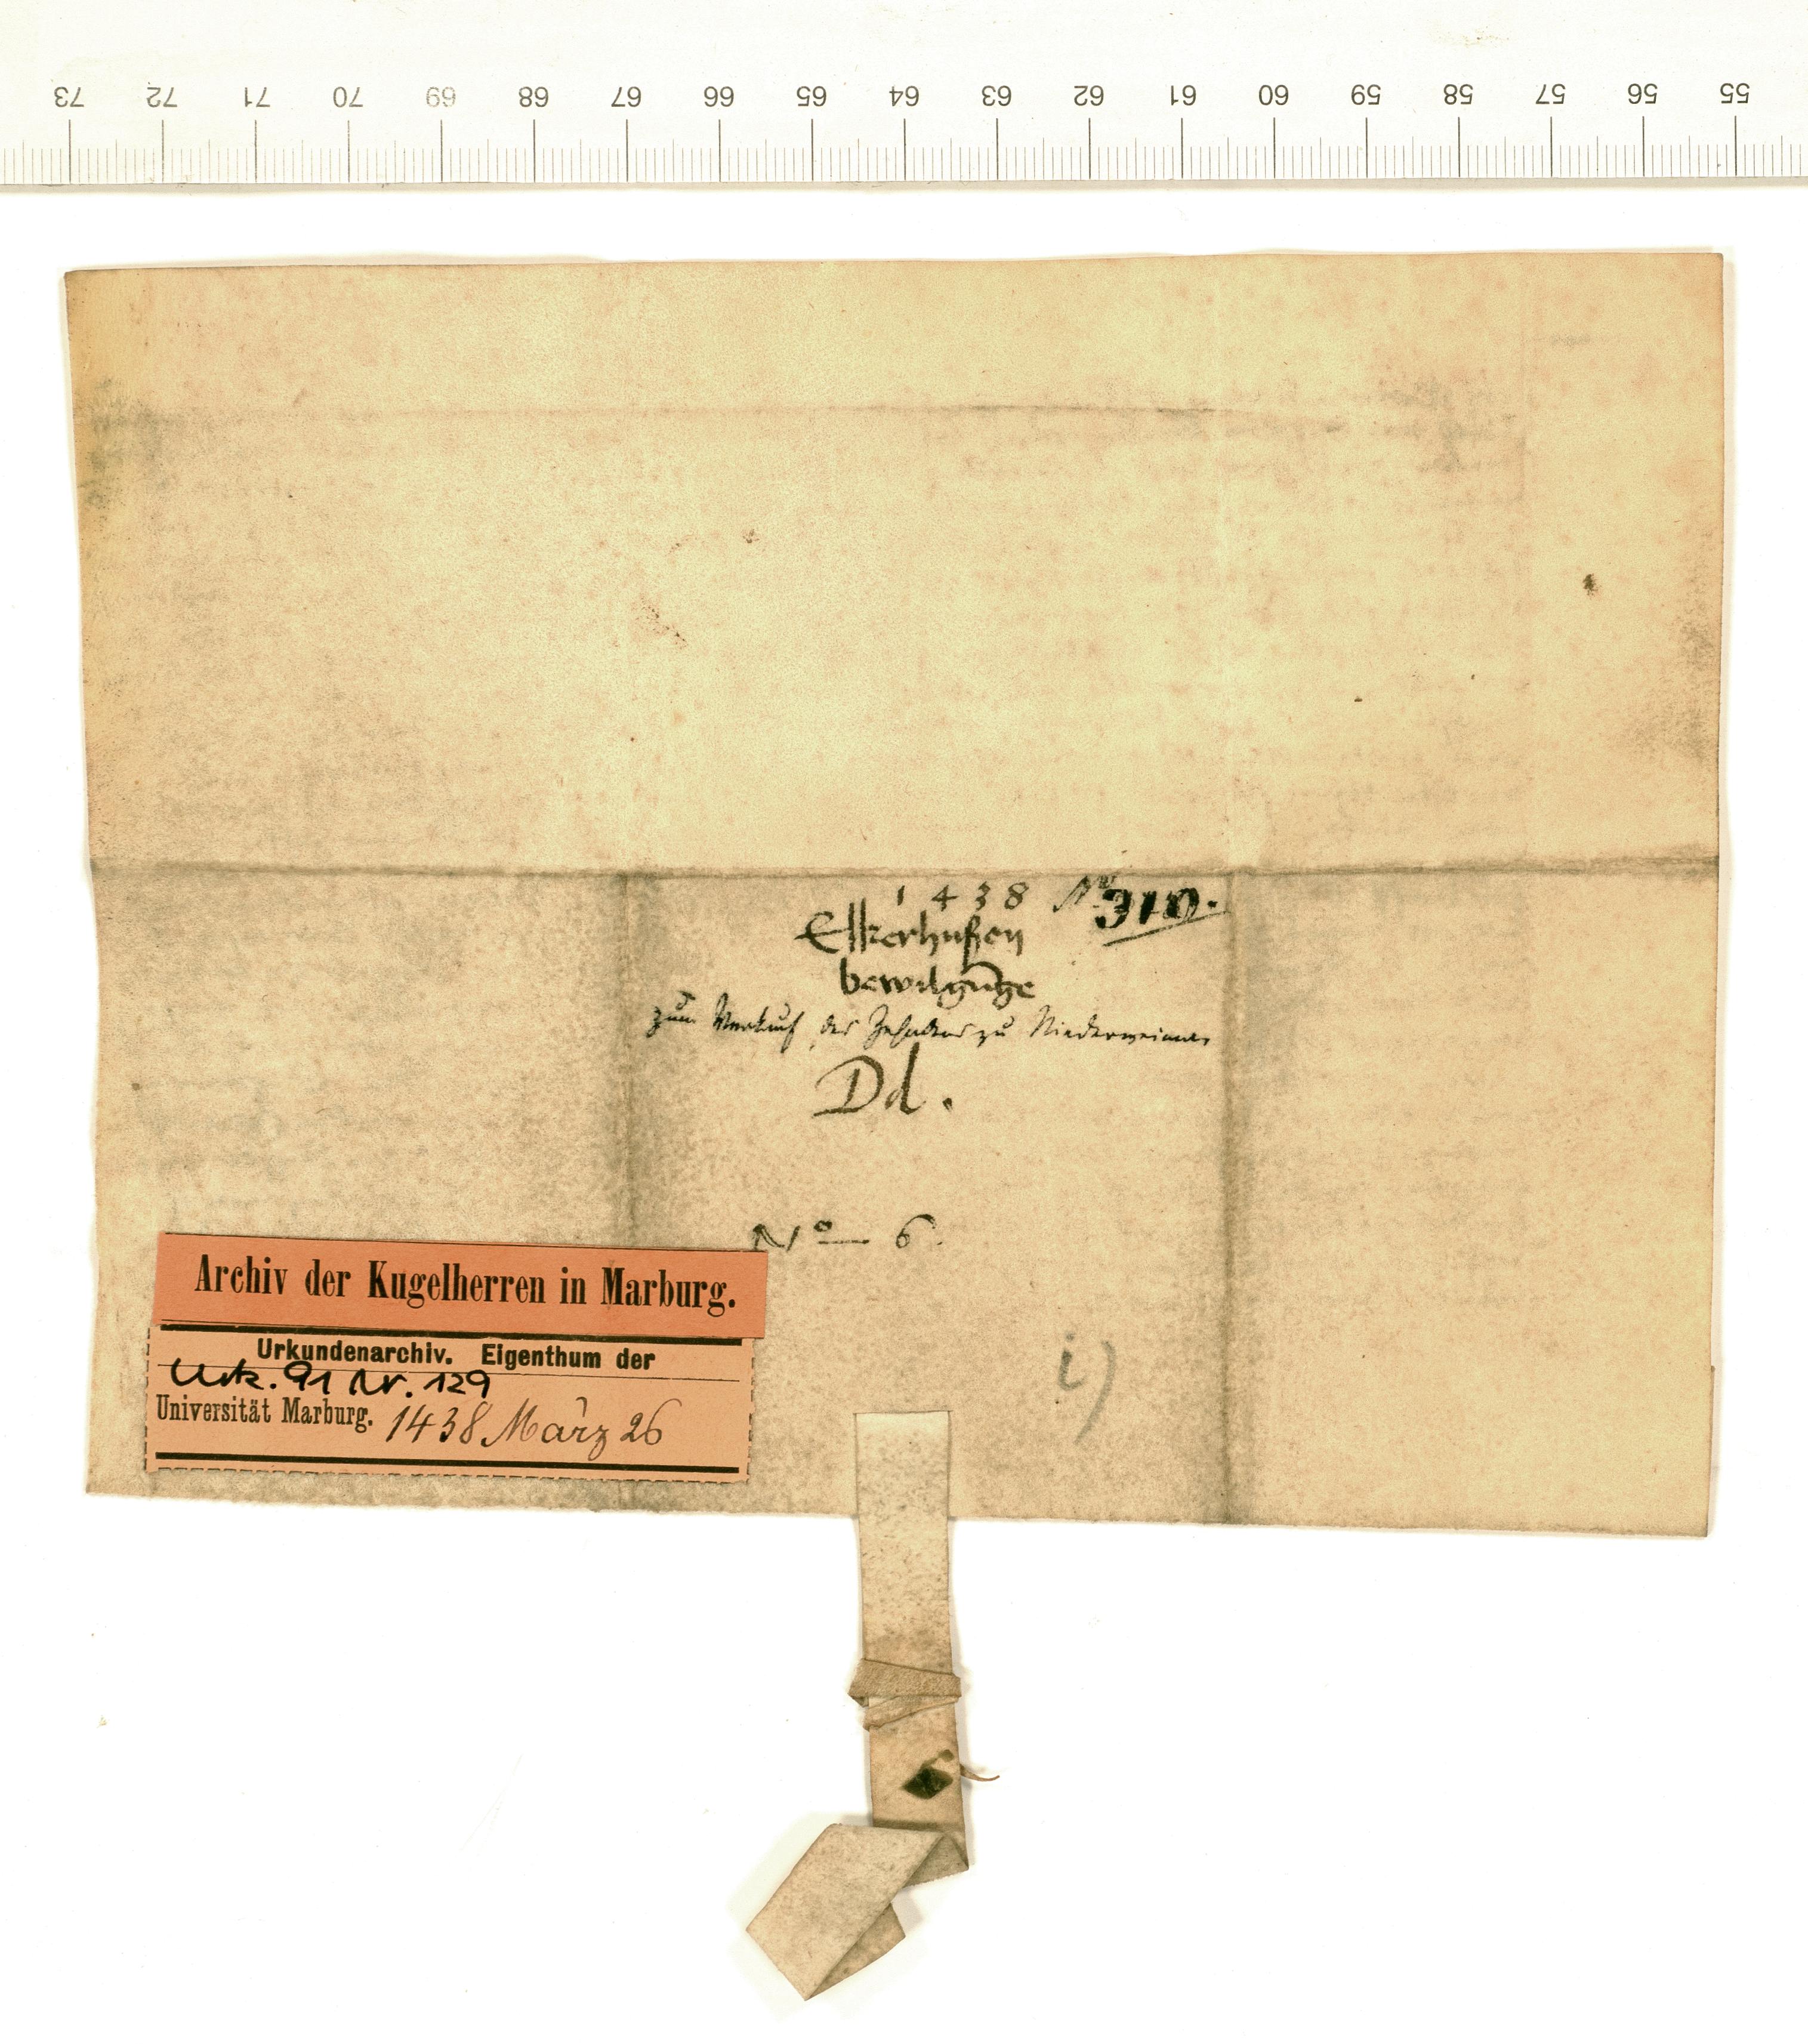 73 72 71 70 69 68 67 66 65 64 63 62 61 60 59 58 57 56 55
1438 No 310.
Elkerhußen
bewilgunge
zum Verkauf des Zehnten zu Niederweimar
Dd.
No 6.
Archiv der Kugelherren in Marburg.
Urkundenarchiv. Eigenthum der
Urk. 91 Nr. 129
Universität Marburg. 1438 März 26
i)